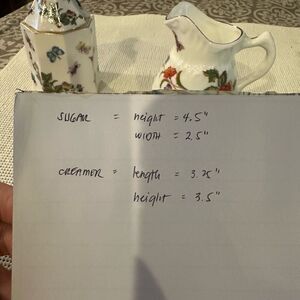 SUGAR = height = 4.5"
WIDTH = 2.5"
CREAMER = length = 3.75"
height = 3.5"